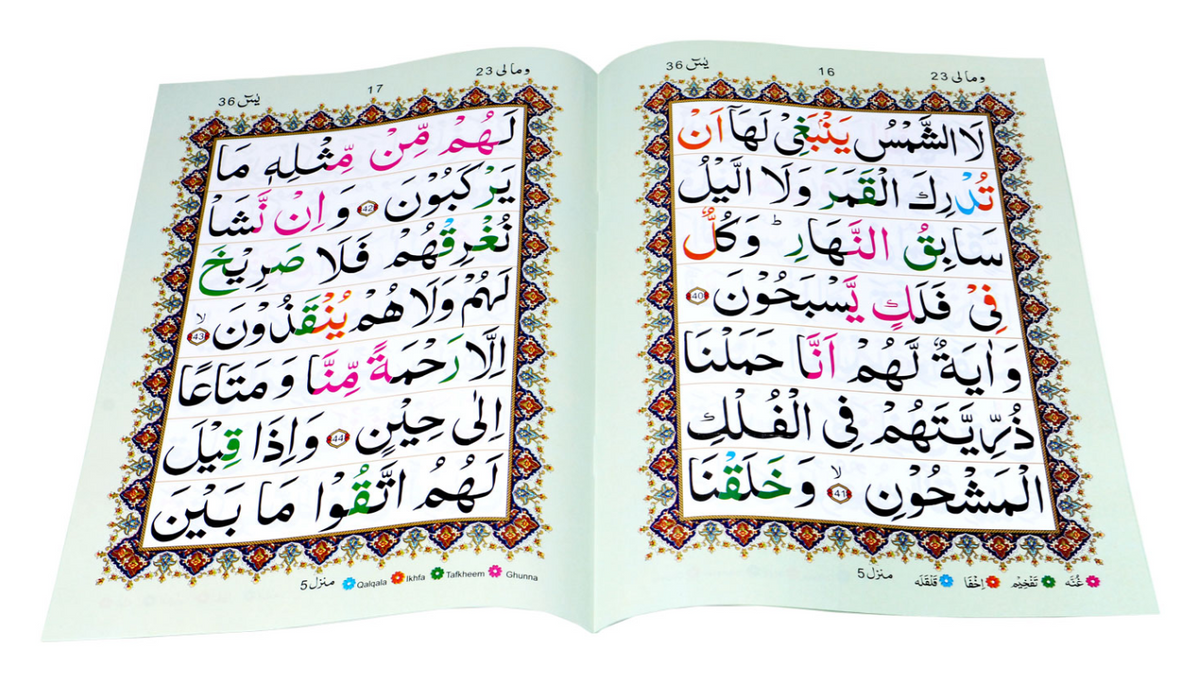 یٰسٓ 36
16
ومالی 23
لَا الشَّمْسُ يَنْۢبَغِىْ لَهَاۤ اَنْ
تُدْرِكَ الْقَمَرَ وَلَا الَّيْلُ
سَابِقُ النَّهَارِ ؕ وَكُلٌّ
فِىْ فَلَكٍ يَّسْبَحُوْنَ 40
وَاٰيَةٌ لَّهُمْ اَنَّا حَمَلْنَا
ذُرِّيَّتَهُمْ فِى الْفُلْكِ
الْمَشْحُوْنِ ۙ 41 وَخَلَقْنَا
منزل 5
غُنَّه تَفْخِيْم اِخْفَا قَلْقَلَه
یٰسٓ 36
17
ومالی 23
لَهُمْ مِّنْ مِّثْلِهٖ مَا
يَرْكَبُوْنَ 42 وَاِنْ نَّشَاْ
نُغْرِقْهُمْ فَلَا صَرِيْخَ
لَهُمْ وَلَا هُمْ يُنْقَذُوْنَ ۙ 43
اِلَّا رَحْمَةً مِّنَّا وَمَتَاعًا
اِلٰى حِيْنٍ 44 وَاِذَا قِيْلَ
لَهُمُ اتَّقُوْا مَا بَيْنَ
منزل 5
Qalqala Ikhfa Tafkheem Ghunna